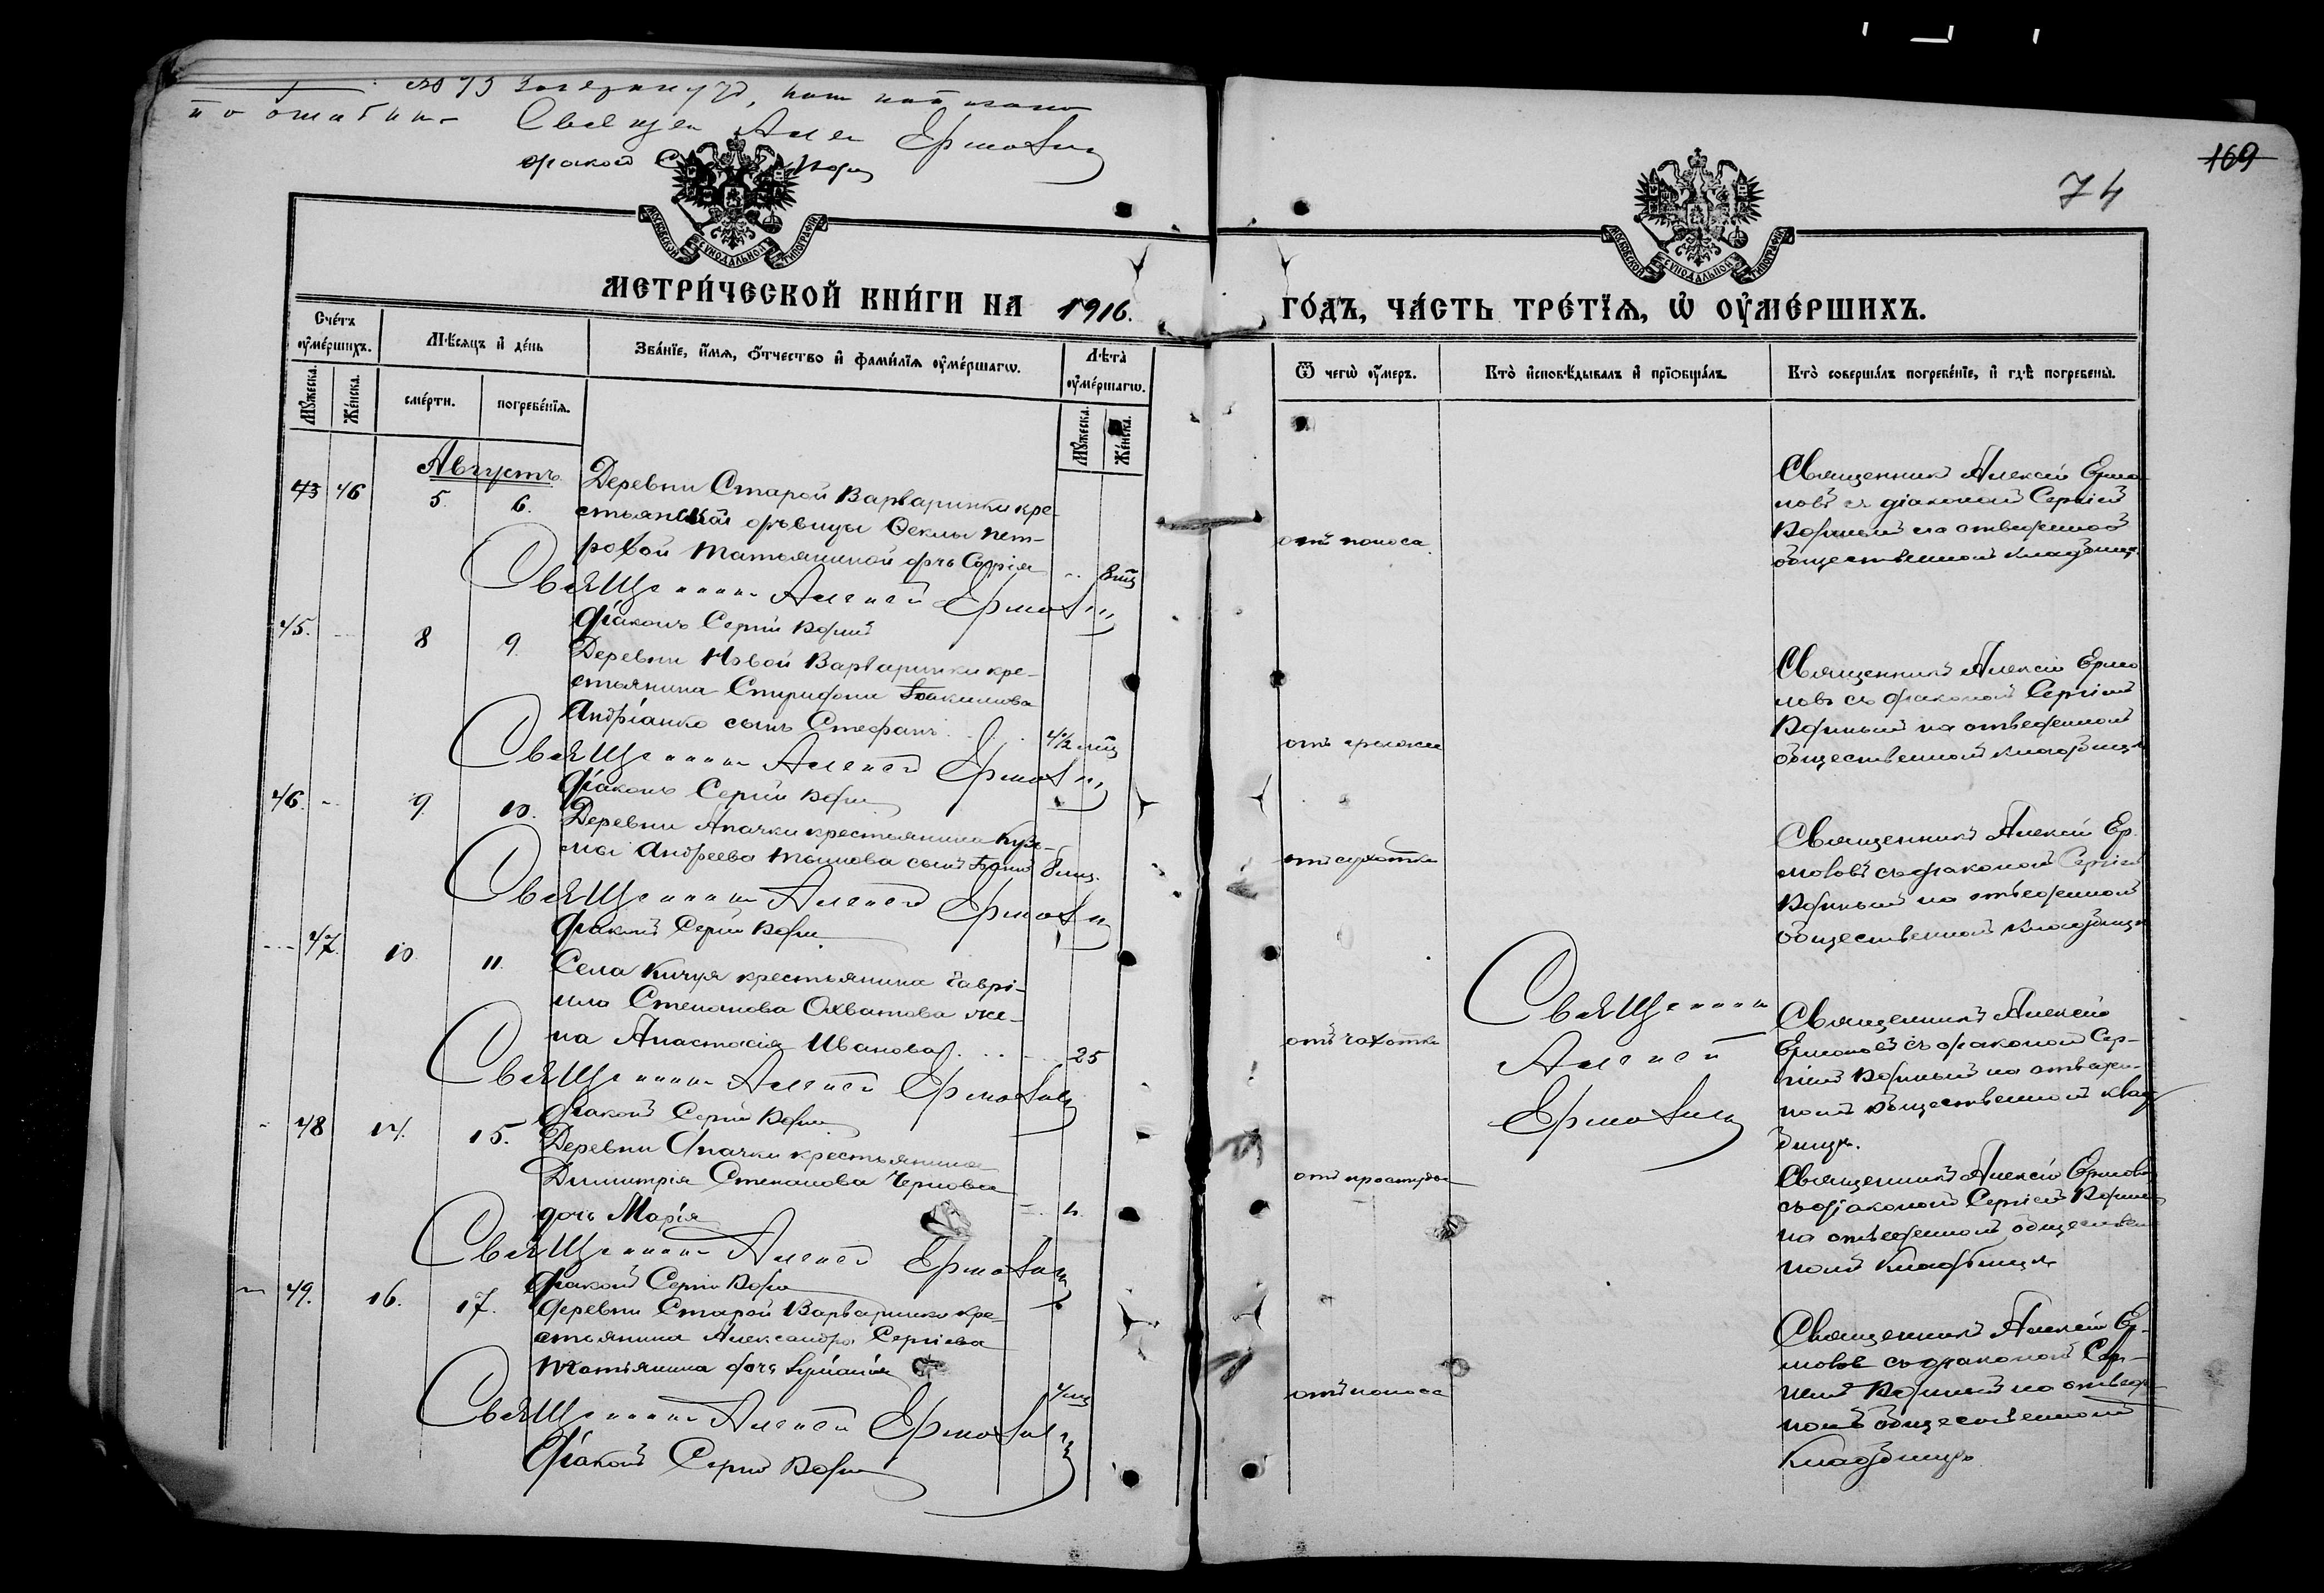 по ошибке Священ Алек Ермолов
169
74
МОСКОВСКОЙ СѴНОДАЛЬНОЙ ТИПОГРАФІИ
МОСКОВСКОЙ СѴНОДАЛЬНОЙ ТИПОГРАФІИ
МЕТРИ́ЧЕСКОЙ КНИ́ГИ НА 1916.
ГО́ДЪ, ЧА́СТЬ ТРЕ́ТІѦ, Ѡ ОУ҆МЕ́РШИХЪ.
Сче́тъ оу҆ме́ршихъ.
Мꙋ́жеска.
Же́нска.
Мѣ́сяцъ и҆ де́нь
сме́рти.
погребе́нїѧ.
Зва́нїе, и҆́мѧ, ѻ҆́тчество и҆ фами́лїѧ оу҆ме́ршагѡ.
Лѣ́та оу҆ме́ршагѡ.
Мꙋ́жеска.
Же́нска.
Ѿ чегѡ̀ оу҆́меръ.
Кто̀ и҆сповѣ́дывалъ и҆ прїѡбща́лъ.
Кто̀ соверша́лъ погребе́нїе, и҆ гдѣ̀ погребены̀.
Августъ
43 46 5. 6. Деревни Старой Варваринки кре-
стьянской дѣвицы Ѳеклы Пет-
ровой Татьяниной дчь Софія 8 мц
Священникъ Алексей Ермолов
Діаконъ Сергій
отъ поноса
Священникъ Алексій Ермо-
ловъ съ діакономъ Сергіемъ
на отведенномъ
общественномъ кладбищѣ.
45. 8 9. Деревни Новой Варваринки кре-
стьянина Іоакимова
Андріанко сынъ Стефанъ 4½ мц
Священникъ Алексей Ермолов
Діаконъ Сергій
отъ
Священникъ Алексій Ермо-
ловъ съ діакономъ Сергіемъ
на отведенномъ
общественномъ кладбищѣ
46. 9. 10. Деревни Апачки крестьянина Кузь-
мы Андреева сынъ 8 мц.
Священникъ Алексей Ермолов
Діаконъ Сергій
отъ сухотки
Священникъ Алексій Ер-
моловъ съ діакономъ Сергіемъ
на отведенномъ
общественномъ кладбищѣ
47. 10. 11. Села Кичуя крестьянина Гаврі-
ила Степанова Охватова же-
на Анастасія Иванова 25
Священникъ Алексей Ермолов
Діаконъ Сергій
отъ чахотки
Священникъ
Алексей
Ермолов
Священникъ Алексій
Ермоловъ съ діакономъ Сер-
гіемъ на отведен-
номъ общественномъ клад-
бищѣ.
48 14. 15. Деревни Апачки крестьянина
Димитрія Степанова Чернова
дочь Марія 4.
Священникъ Алексей Ермолов
Діаконъ Сергій
отъ простуды
Священникъ Алексій Ермоловъ
съ діакономъ Сергіемъ
на отведенномъ обществен-
номъ кладбищѣ
49. 16. 17. Деревни Старой Варваринки кре-
стьянина Александра Сергіева
Татьянина дочь 4 мц
Священникъ Алексей Ермолов
Діаконъ Сергій
отъ поноса
Священникъ Алексій Ер-
моловъ съ діакономъ Сер-
гіемъ на отведен-
номъ общественномъ
кладбищѣ